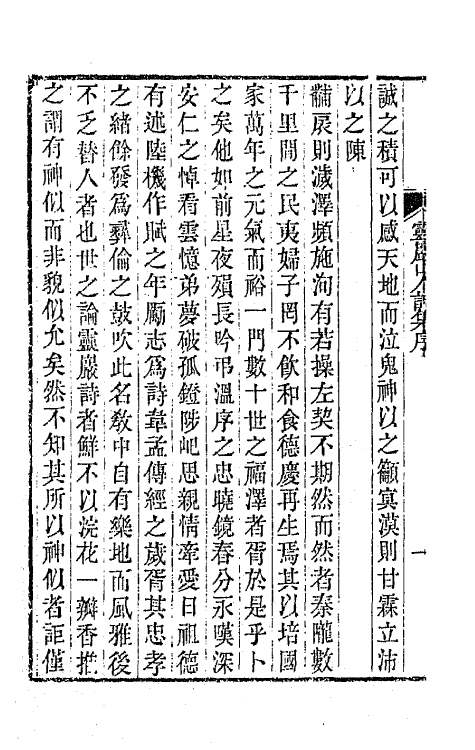 靈巖山人詩集序
一
誠之積可以感天地而泣鬼神以之籲寞漠則甘霖立沛
以之陳
黼扆則濊澤頻施洵有若操左契不期然而然者秦隴數
千里間之民夷婦子罔不飮和食德慶再生焉其以培國
家萬年之元氣而裕一門數十世之福澤者胥於是乎卜
之矣他如前星夜殞長吟弔溫序之忠曉鏡春分永嘆深
安仁之悼看雲憶弟夢破孤鐙陟屺思親情牽愛日祖德
有述陸機作賦之年勵志爲詩韋孟傳經之歲胥其忠孝
之緒餘發爲彝倫之鼓吹此名敎中自有樂地而風雅後
不乏替人者也世之論靈巖詩者鮮不以浣花一瓣香推
之謂有神似而非貌似允矣然不知其所以神似者詎僅